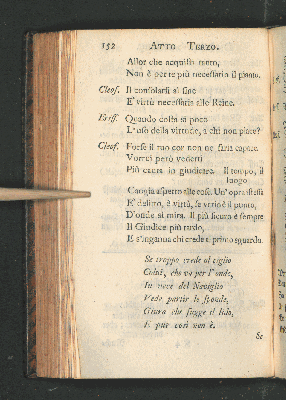 132 ATTO TERZO.
Allor che acquisti tanto,
Non è per te più necessario il pianto.
Cleof. Il consolarsi al fine
E' virtù necessaria alle Reine.
Eriss. Quando costa sì poco
L'uso della virtude, a chi non piace?
Cleof. Forse il tuo cor non ne saria capace.
Vorrei però vederti
Più cauta in giudicar. Il tempo, il
luogo
Cangia aspetto alle cose. Un' opra istessa
E' delitto, è virtù, se vario è il punto,
D'onde si mira. Il più sicuro è sempre
Il Giudice più tardo,
E s'inganna chi crede al primo sguardo.
Se troppo crede al ciglio
Colui, che va per l'onde,
In vece del Naviglio
Vede partir le sponde,
Giura che fugge il lido,
E pur così non è.
Se